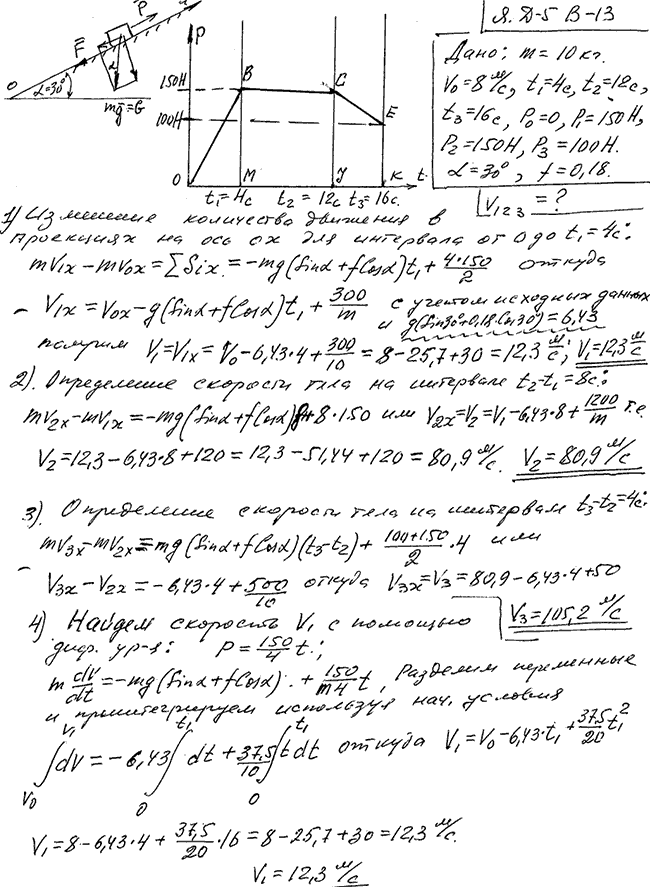 Я. Д-5 В-13
Дано: m = 10 кг.
V₀=8 м/с, t₁=4с, t₂=12с,
t₃=16с, P₀=0, P₁=150Н,
P₂=150Н, P₃=100Н.
α=30°, f=0,18.
V₁₂₃ = ?
P̄
x
F̄
α
0
α=30°
mḡ=G
P
150Н
100Н
B
C
E
0
M
J
K
t.
t₁=4с t₂=12с t₃=16с.
1) Изменение количества движения в
проекциях на ось ох для интервала от 0 до t₁=4с:
mV₁ₓ-mV₀ₓ=∑Sᵢₓ=-mg(Sinα+fCosα)t₁+4·150/2 откуда
V₁ₓ=V₀ₓ-g(Sinα+fCosα)t₁+300/m с учетом исходных данных
и g(Sin30°+0,18·Cos30°)=6,43
получим V₁=V₁ₓ=V₀-6,43·4+300/10=8-25,7+30=12,3 м/с; V₁=12,3 м/с
2). Определение скорости тела на интервале t₂-t₁=8с:
mV₂ₓ-mV₁ₓ=-mg(Sinα+fCosα)8+8·150 или V₂ₓ=V₂=V₁-6,43·8+1200/m т.е.
V₂=12,3-6,43·8+120=12,3-51,44+120=80,9 м/с. V₂=80,9 м/с
3). Определение скорости тела на интервале t₃-t₂=4с:
mV₃ₓ-mV₂ₓ=-mg(Sinα+fCosα)(t₃-t₂)+100+150/2·4 или
V₃ₓ-V₂ₓ=-6,43·4+500/10 откуда V₃ₓ=V₃=80,9-6,43·4+50
V₃=105,2 м/с
4) Найдем скорость V₁ с помощью
диф. ур-я: P=150/4 t.;
m dV/dt=-mg(Sinα+fCosα).+150/m4 t, Разделим переменные
и проинтегрируем используя нач. условия
∫V₀V₁ dV=-6,43∫0t₁ dt+37,5/10∫0t₁ t dt откуда V₁=V₀-6,43·t₁+37,5/20 t₁²
V₁=8-6,43·4+37,5/20·16=8-25,7+30=12,3 м/с.
V₁=12,3 м/с